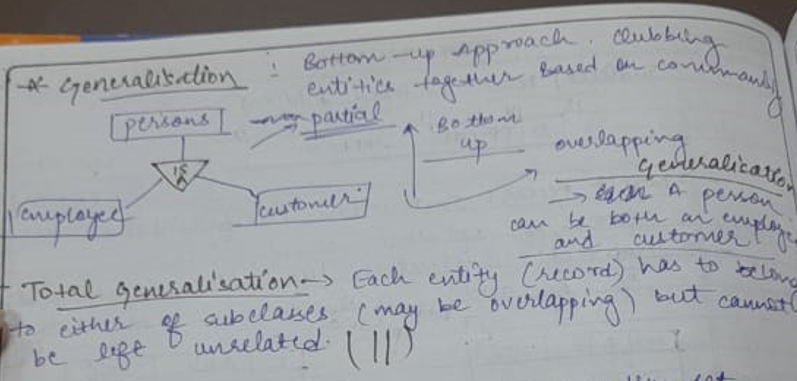 * Generalisation : Bottom-up Approach. Clubbing
entities together based on commonality
persons
partial
Bottom
up
overlapping
Generalisation
IS
A
employee
customer
→ A person
can be both an employee
and customer
Total Generalisation → Each entity (record) has to belong
to either of subclasses (may be overlapping) but cannot
be left unrelated. (||)